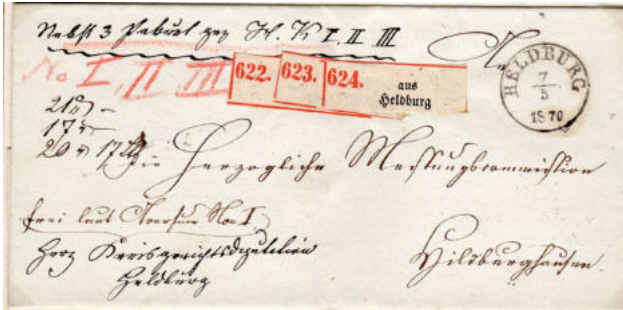 Nebst 3 Paket gez H. K I. II. III
An
No I, II III
622. 623. 624. aus
Heldburg
HELDBURG
7
5
1870
21 –
17
20 17 die Herzogliche Messungscommission
frei laut Aversum No. I
Herz Kreisgerichtsdeputation
Heldburg
Hildburghausen.